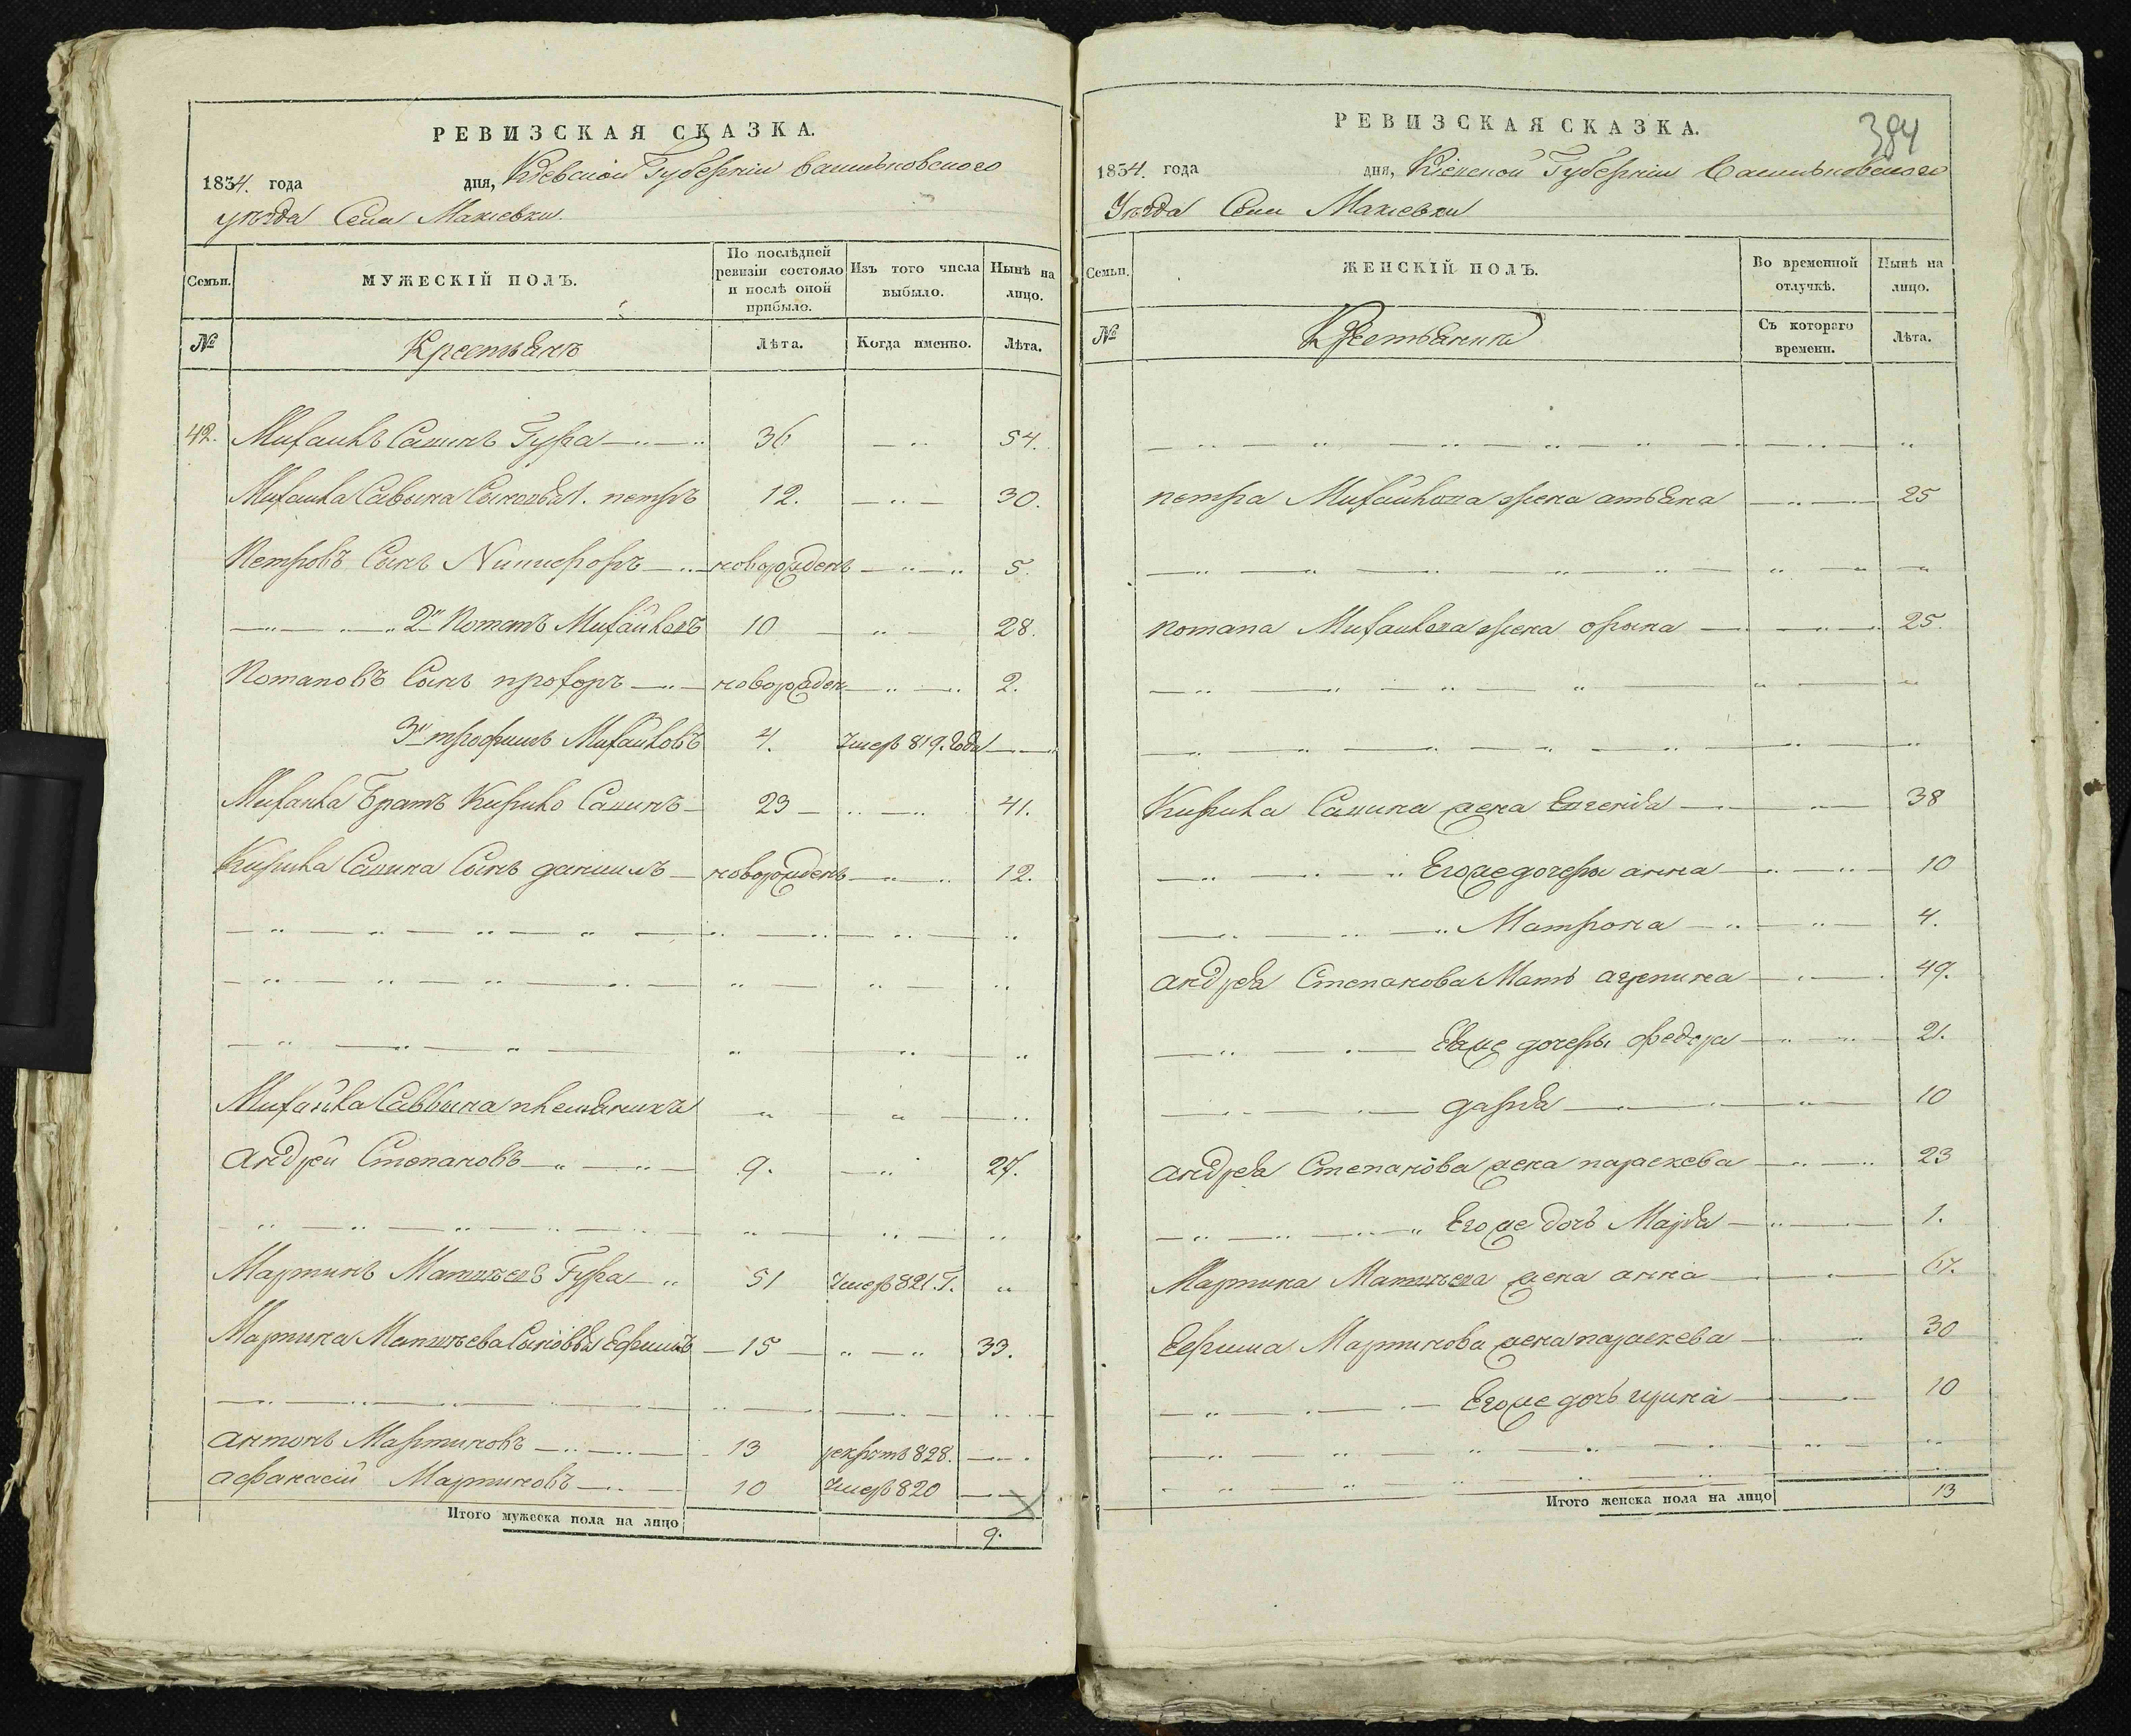 РЕВИЗСКАЯ СКАЗКА.
1834. года дня, Кіевской Губерніи Васильковскаго
уѣзда Села Макіевки.
Семьи. МУЖЕСКІЙ ПОЛЪ. По послѣдней ревизіи состояло и послѣ оной прибыло. Изъ того числа выбыло. Нынѣ на лицо.
№ Крестьянъ Лѣта. Когда именно. Лѣта.
42. Михайлъ Савинъ Гура 36 54.
Михайла Савына Сыновья 1. петръ 12. 30.
Петровъ Сынъ Никифоръ новорожденъ 5.
2й Потапъ Михайловъ 10 28.
Потаповъ Сынъ прохоръ новорожден 2.
3й трофимъ Михайловъ 4. Умеръ 819. Года
Михайла Братъ Кирило Савинъ 23 41.
Кирила Савина Сынъ даниилъ новорожденъ 12.
Михайла Саввына племянникъ
андрей Степановъ 9. 27.
Мартинъ Матвѣевъ Гура 51 Умеръ 821. Г.
Мартина Матвѣева Сыновья Ефимъ 15 33.
антонъ Мартиновъ 13 рекрутъ 828.
афанасій Мартиновъ 10 Умеръ 820
Итого мужеска пола на лицо 9.
РЕВИЗСКАЯ СКАЗКА.
384
1834. года дня, Кіевской Губерніи Васильковскаго
Уѣзда Села Макіевки
Семьи. ЖЕНСКІЙ ПОЛЪ. Во временной отлучкѣ. Нынѣ на лицо.
№ Съ котораго времени. Лѣта.
петра Михайлова жена 25
потапа Михайлова жена орына 25.
Кирила Савина жена Евгенія 38
Егоже дочеры анна 10
Матрона 4.
андрея Степанова Мать агрепина 49.
Еяже дочеры федора 21.
дарія 10
андрея Степанова жена параскева 23
Егоже дочь Марія 1.
Мартина Матвѣева жена анна 67.
Ефима Мартинова жена параскева 30
Егоже дочь 10
Итого женска пола на лицо 13